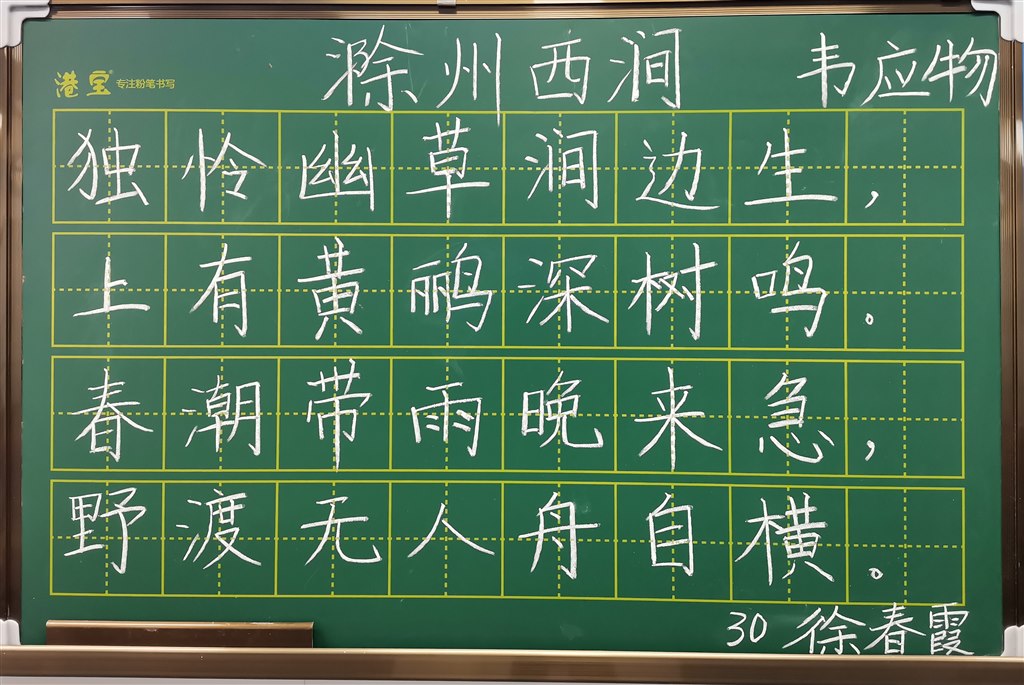 滁州西涧 韦应物
港宝 专注粉笔书写
独怜幽草涧边生，
上有黄鹂深树鸣。
春潮带雨晚来急，
野渡无人舟自横。
30 徐春霞